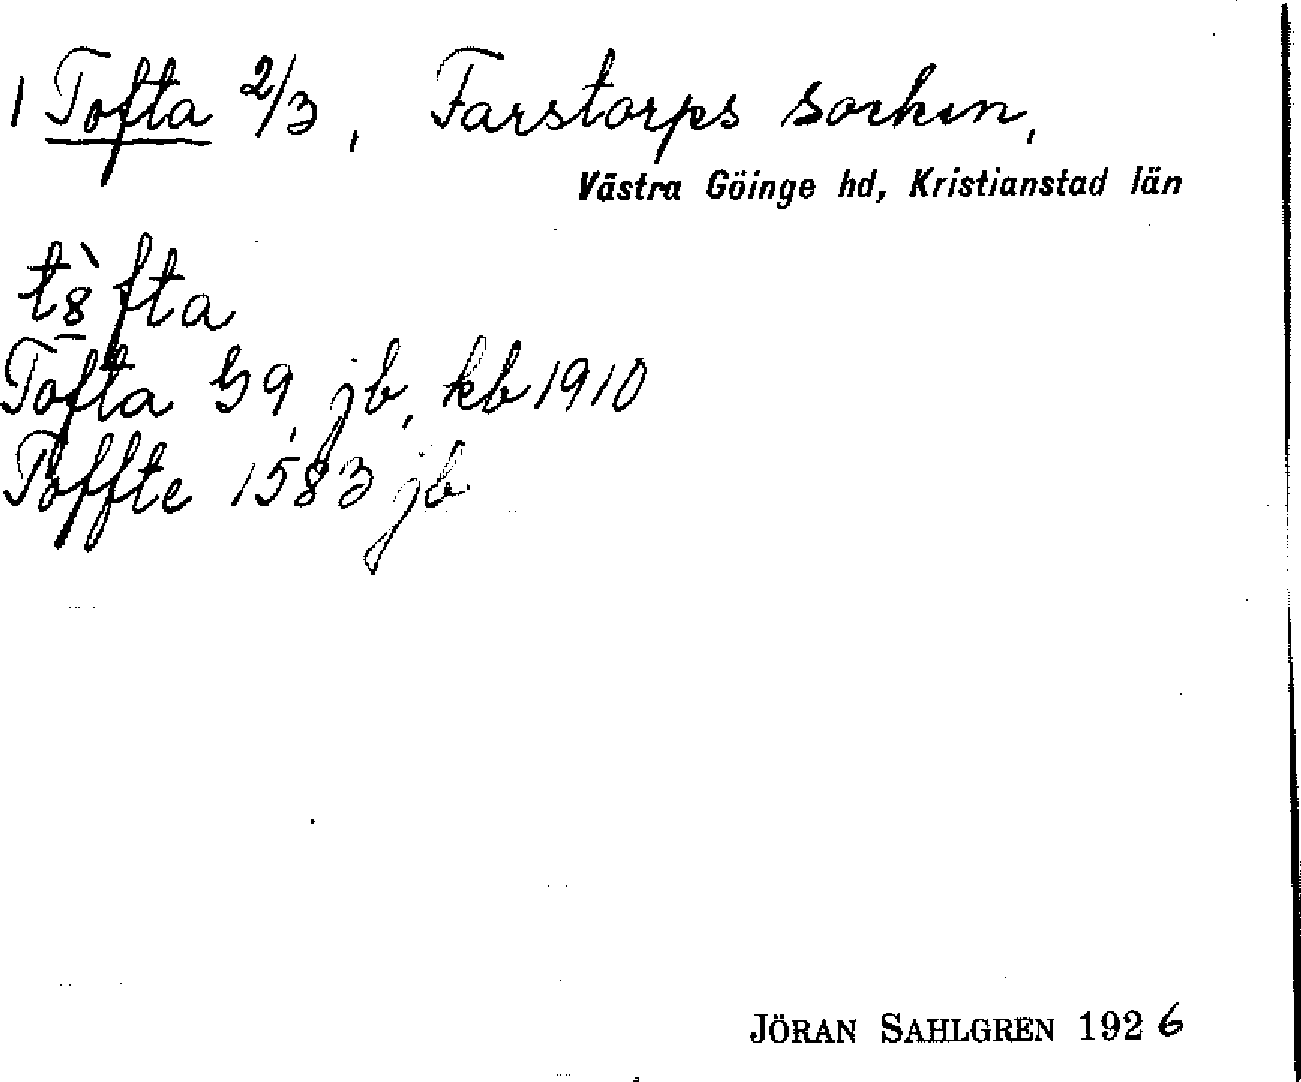 1 Tofta 2/3, Farstorps socken,
Västra Göinge hd, Kristianstad län
tȣ̀fta
Tofta G9, jb, kb 1910
Toffte 1583 jb
JÖRAN SAHLGREN 1926